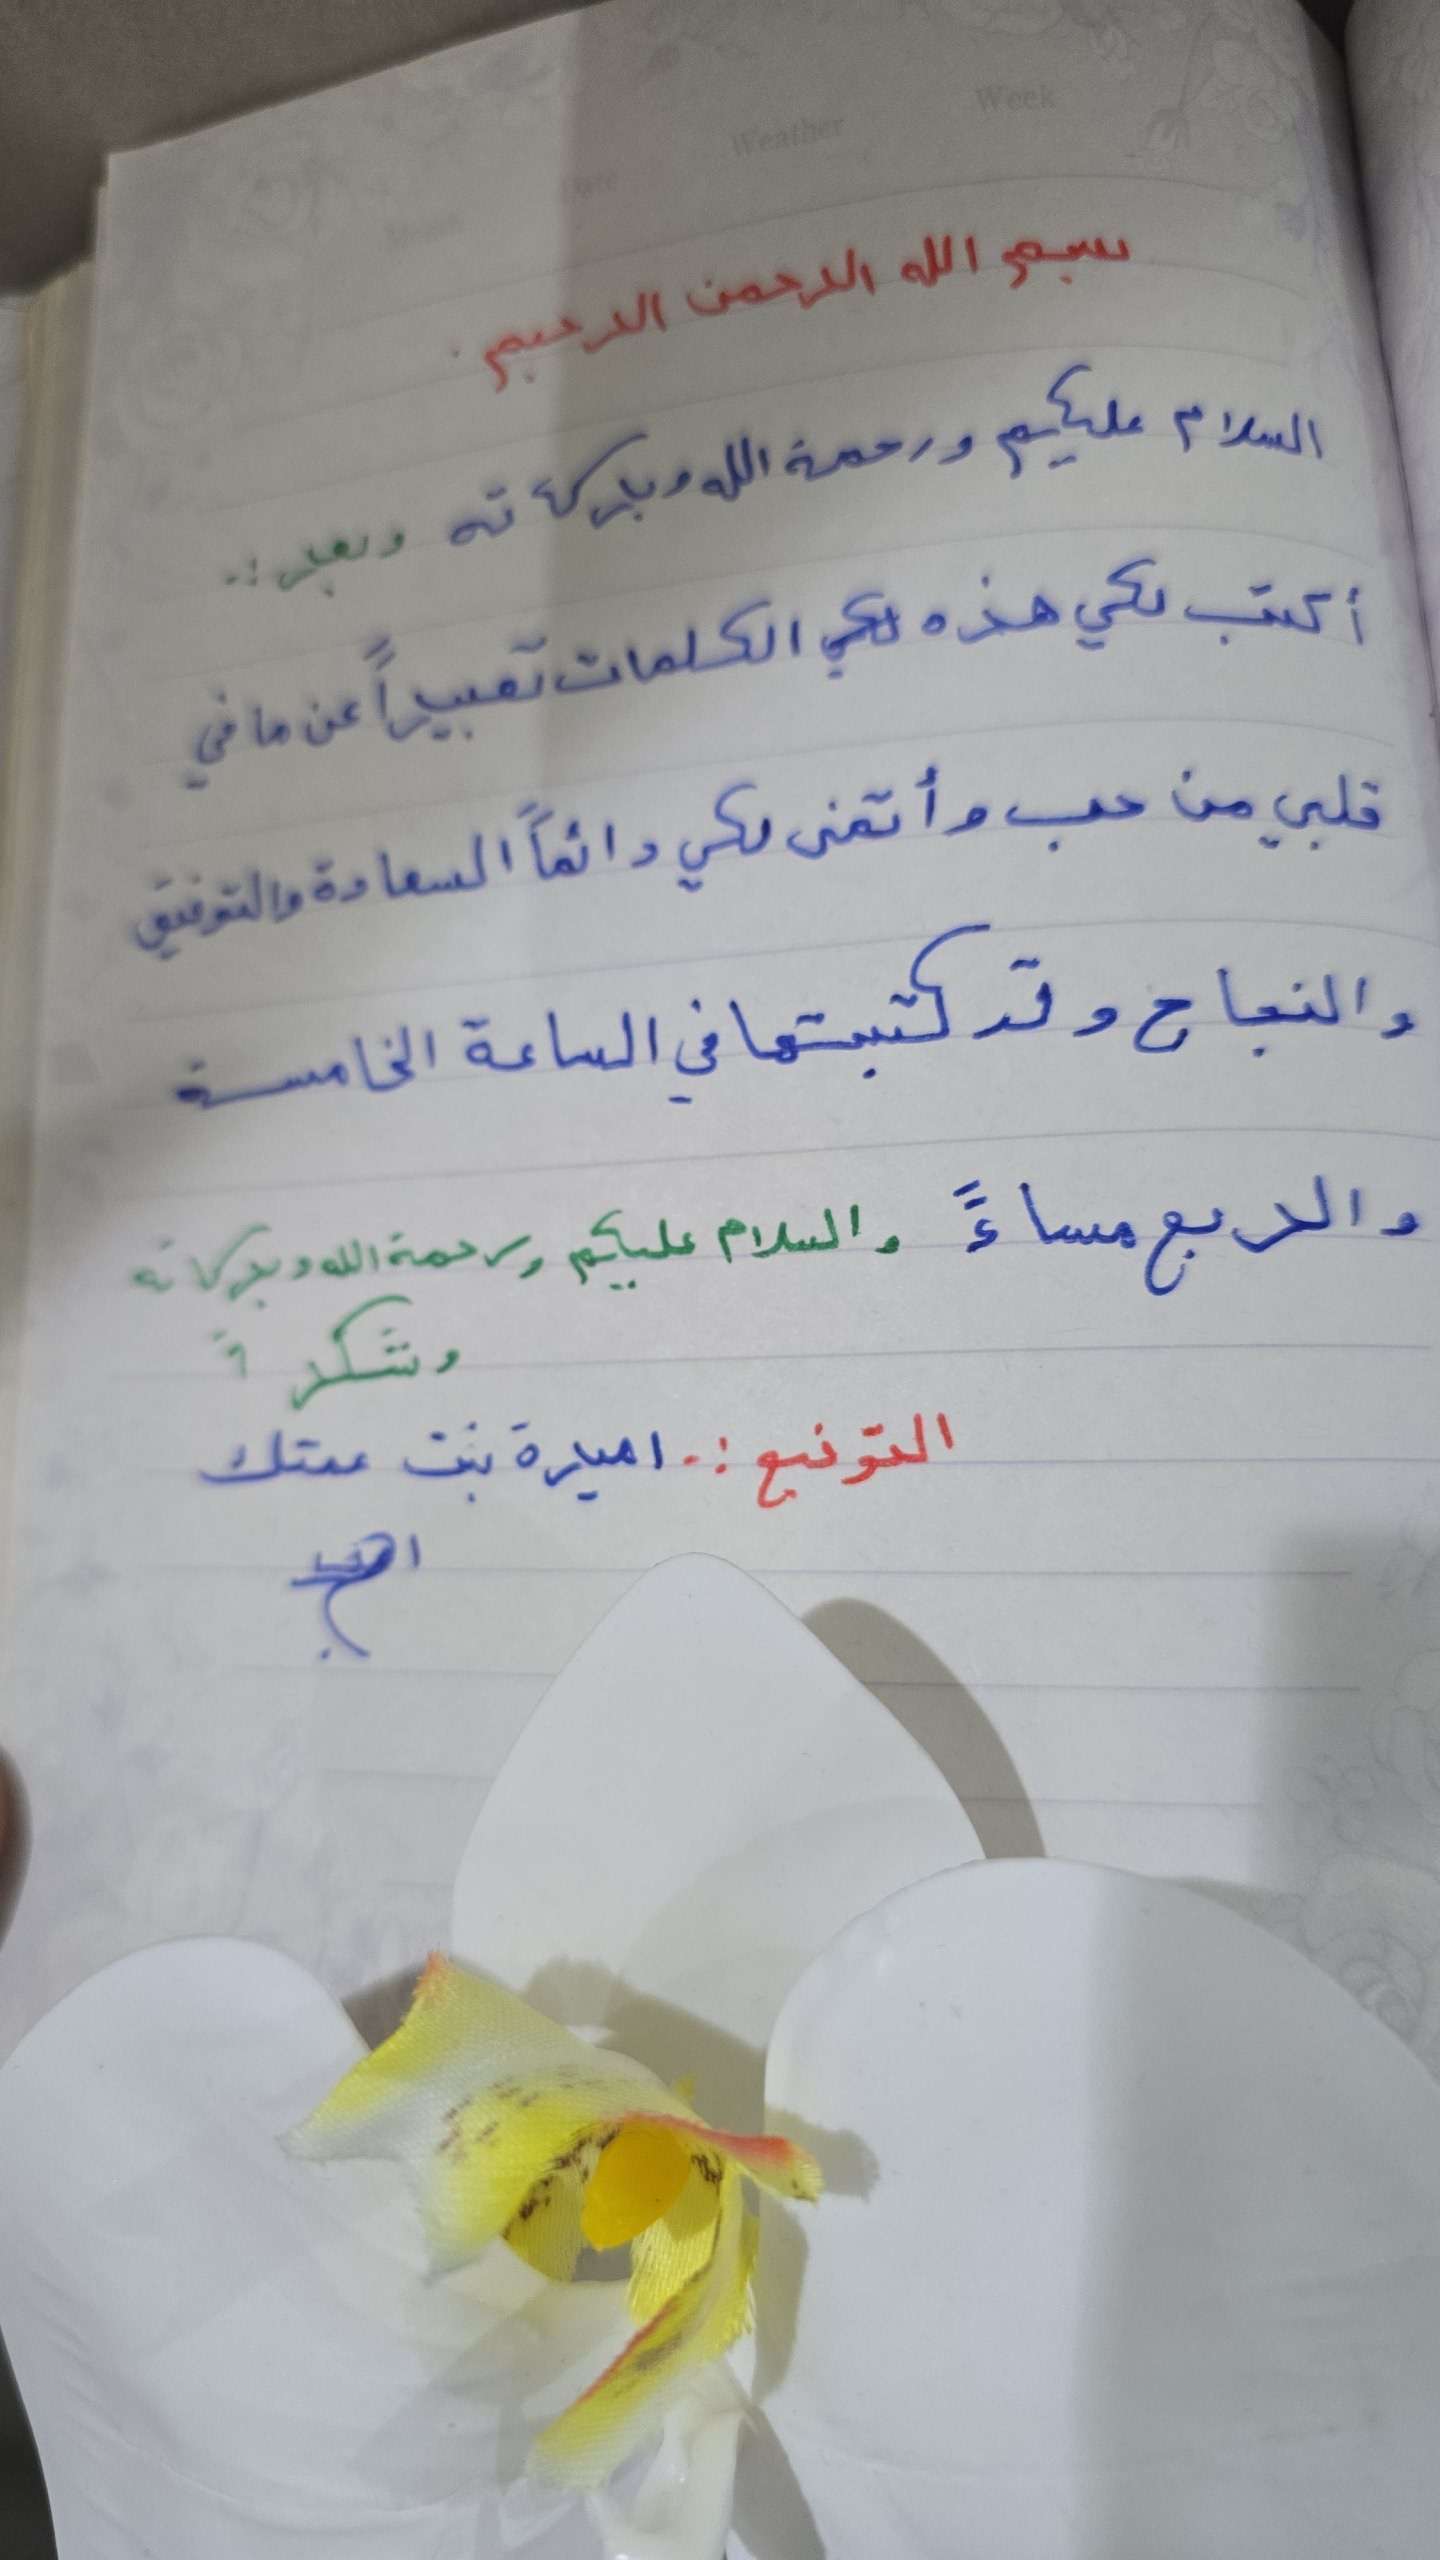 Week
Weather
بسم الله الرحمن الرحيم.
السلام عليكم ورحمة الله وبركاته وبعد:.
أكتب لكي هذه لكي الكلمات تعبيراً عن ما في
قلبي من حب وأتمنى لكي دائماً السعادة والتوفيق
والنجاح وقد كتبتها في الساعة الخامسة
والربع مساءً والسلام عليكم ورحمة الله وبركاته
وشكراً
التوقيع :. اميرة بنت عمتك